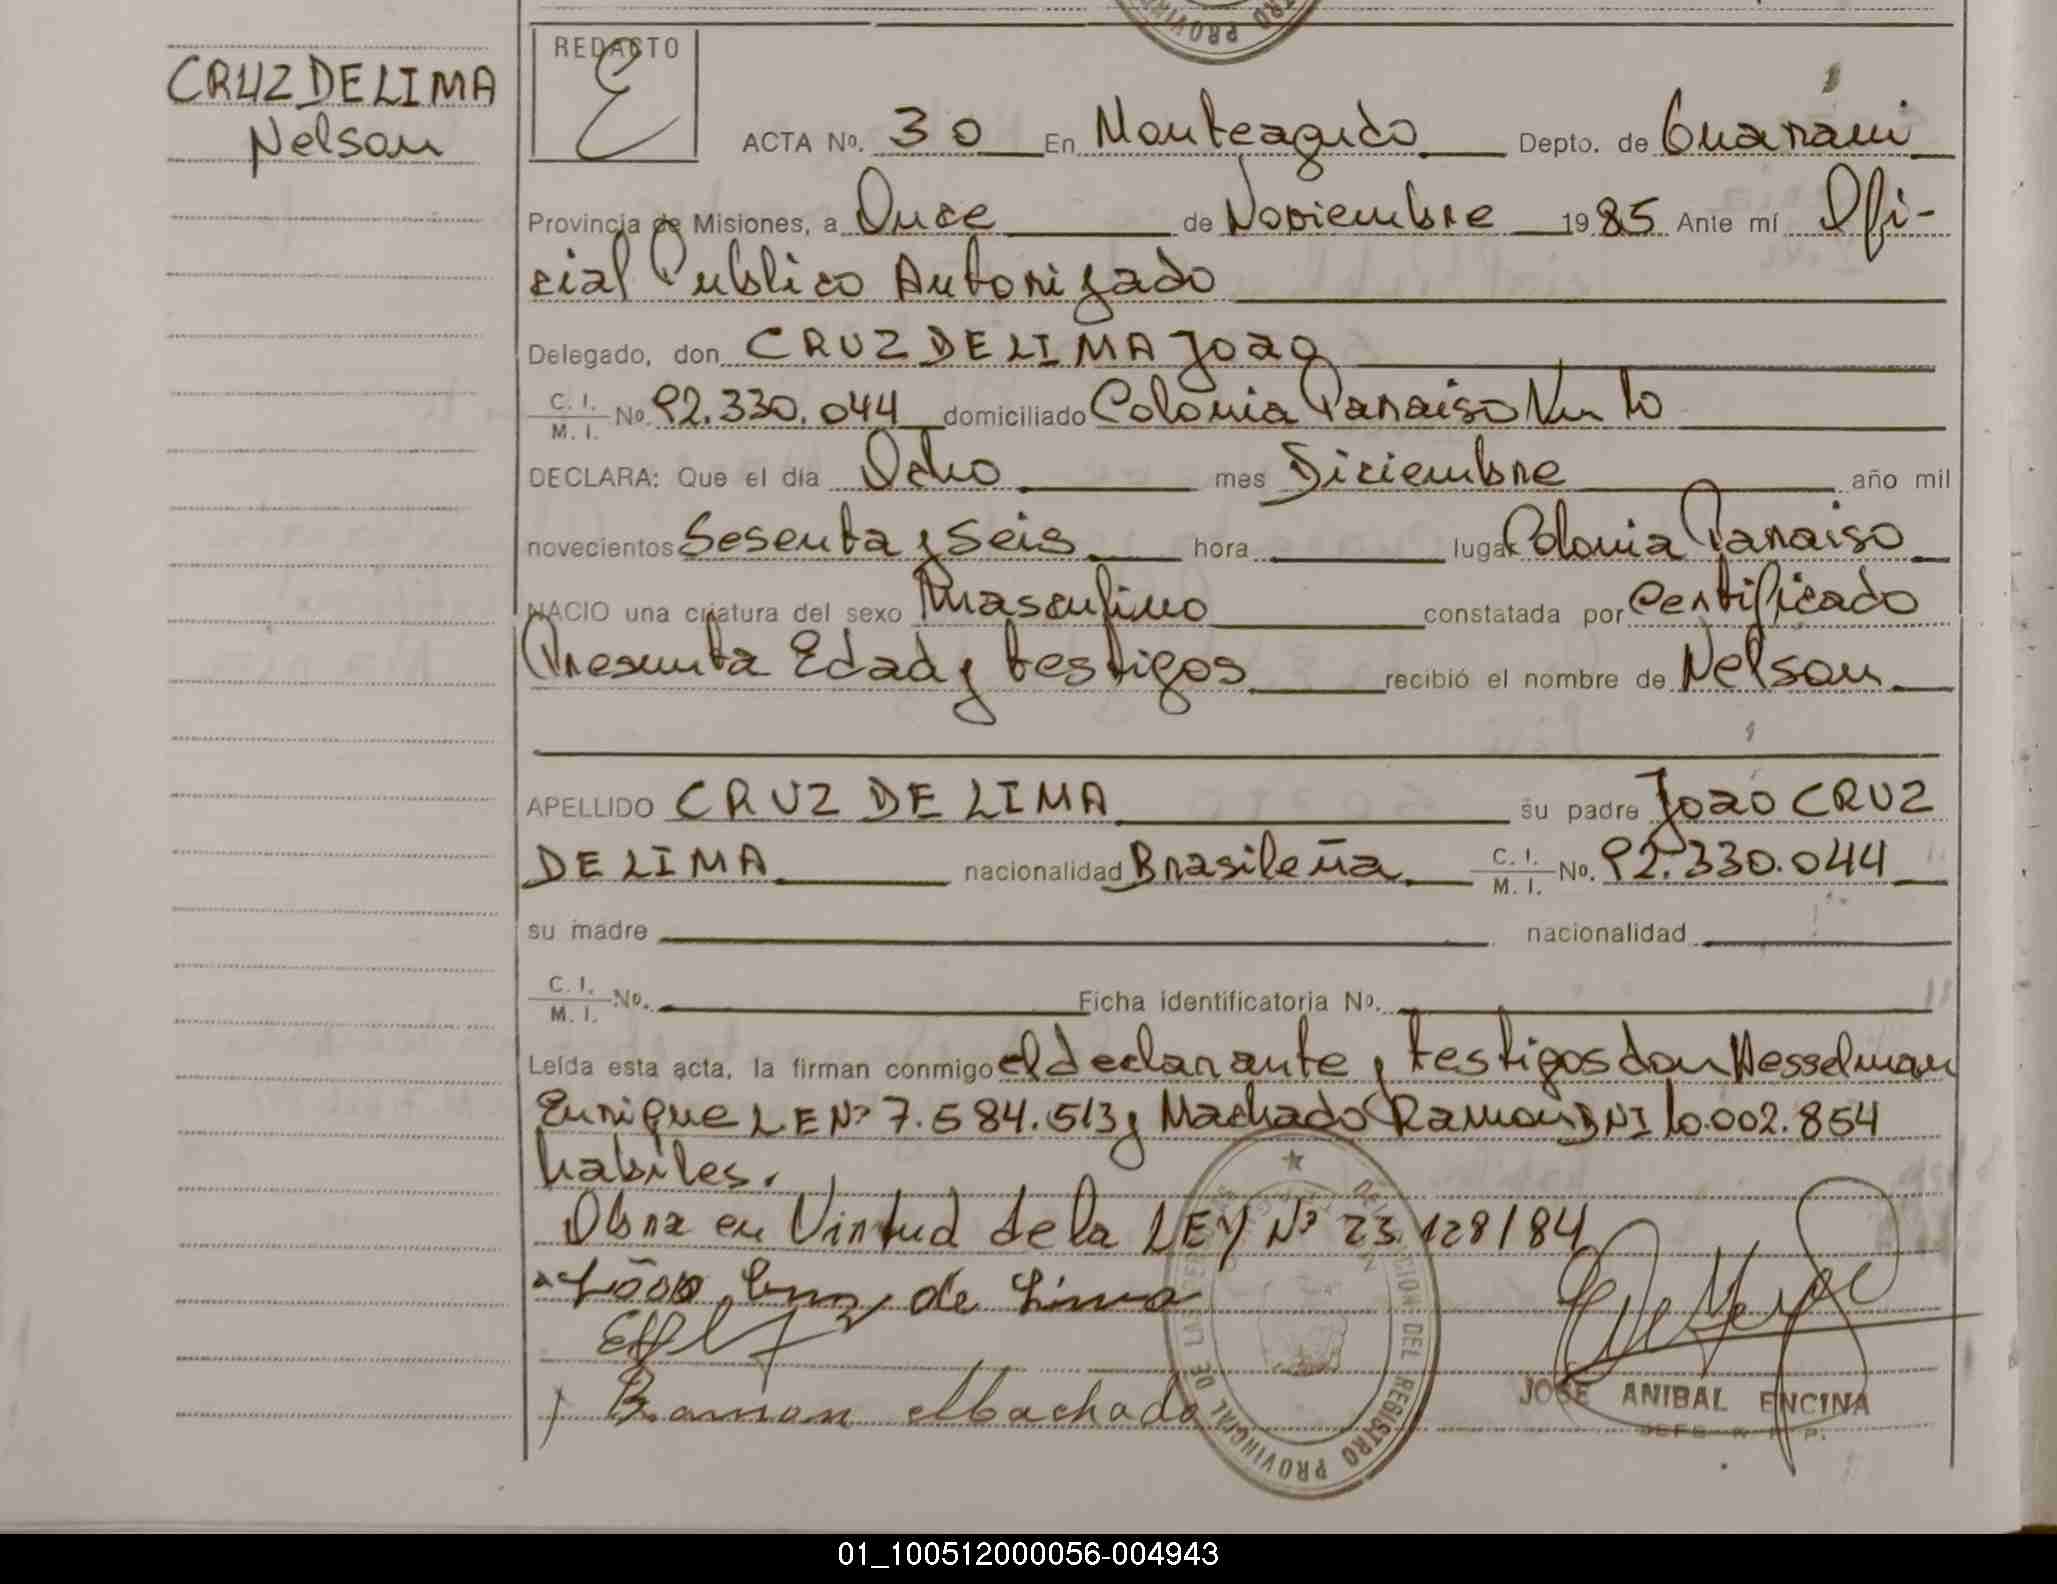 CRUZ DE LIMA
Nelson
REDACTO
ACTA No. 30 En Monteagudo Depto. de Guarani
Provincia de Misiones, a Once de Noviembre 1985 Ante mí Ofi-
cial Publico Autorizado
Delegado, don CRUZ DE LIMA Joao
C. I. / M. I. No. 92.330.044 domiciliado Colonia Paraiso
DECLARA: Que el día Ocho mes Diciembre año mil
novecientos Sesenta y Seis hora lugar Colonia Paraiso
NACIO una criatura del sexo Masculino constatada por Certificado
Presunta Edad y testigos recibió el nombre de Nelson
APELLIDO CRUZ DE LIMA su padre Joao CRUZ
DE LIMA nacionalidad Brasileña C. I. / M. I. No. 92.330.044
su madre nacionalidad
C. I. / M. I. No. Ficha identificatoria No.
Leída esta acta, la firman conmigo el declarante y testigos don Hesselman
Enrique L E Nº 7.584.513 y Machado Ramon DNI 10.002.854
habiles.
Obra en Virtud de la LEY Nº 23.128/84
João Cruz de Lima
Ramon Machado
JOSE ANIBAL ENCINA
DEL REGISTRO PROVINCIAL DE LAS
01_100512000056-004943